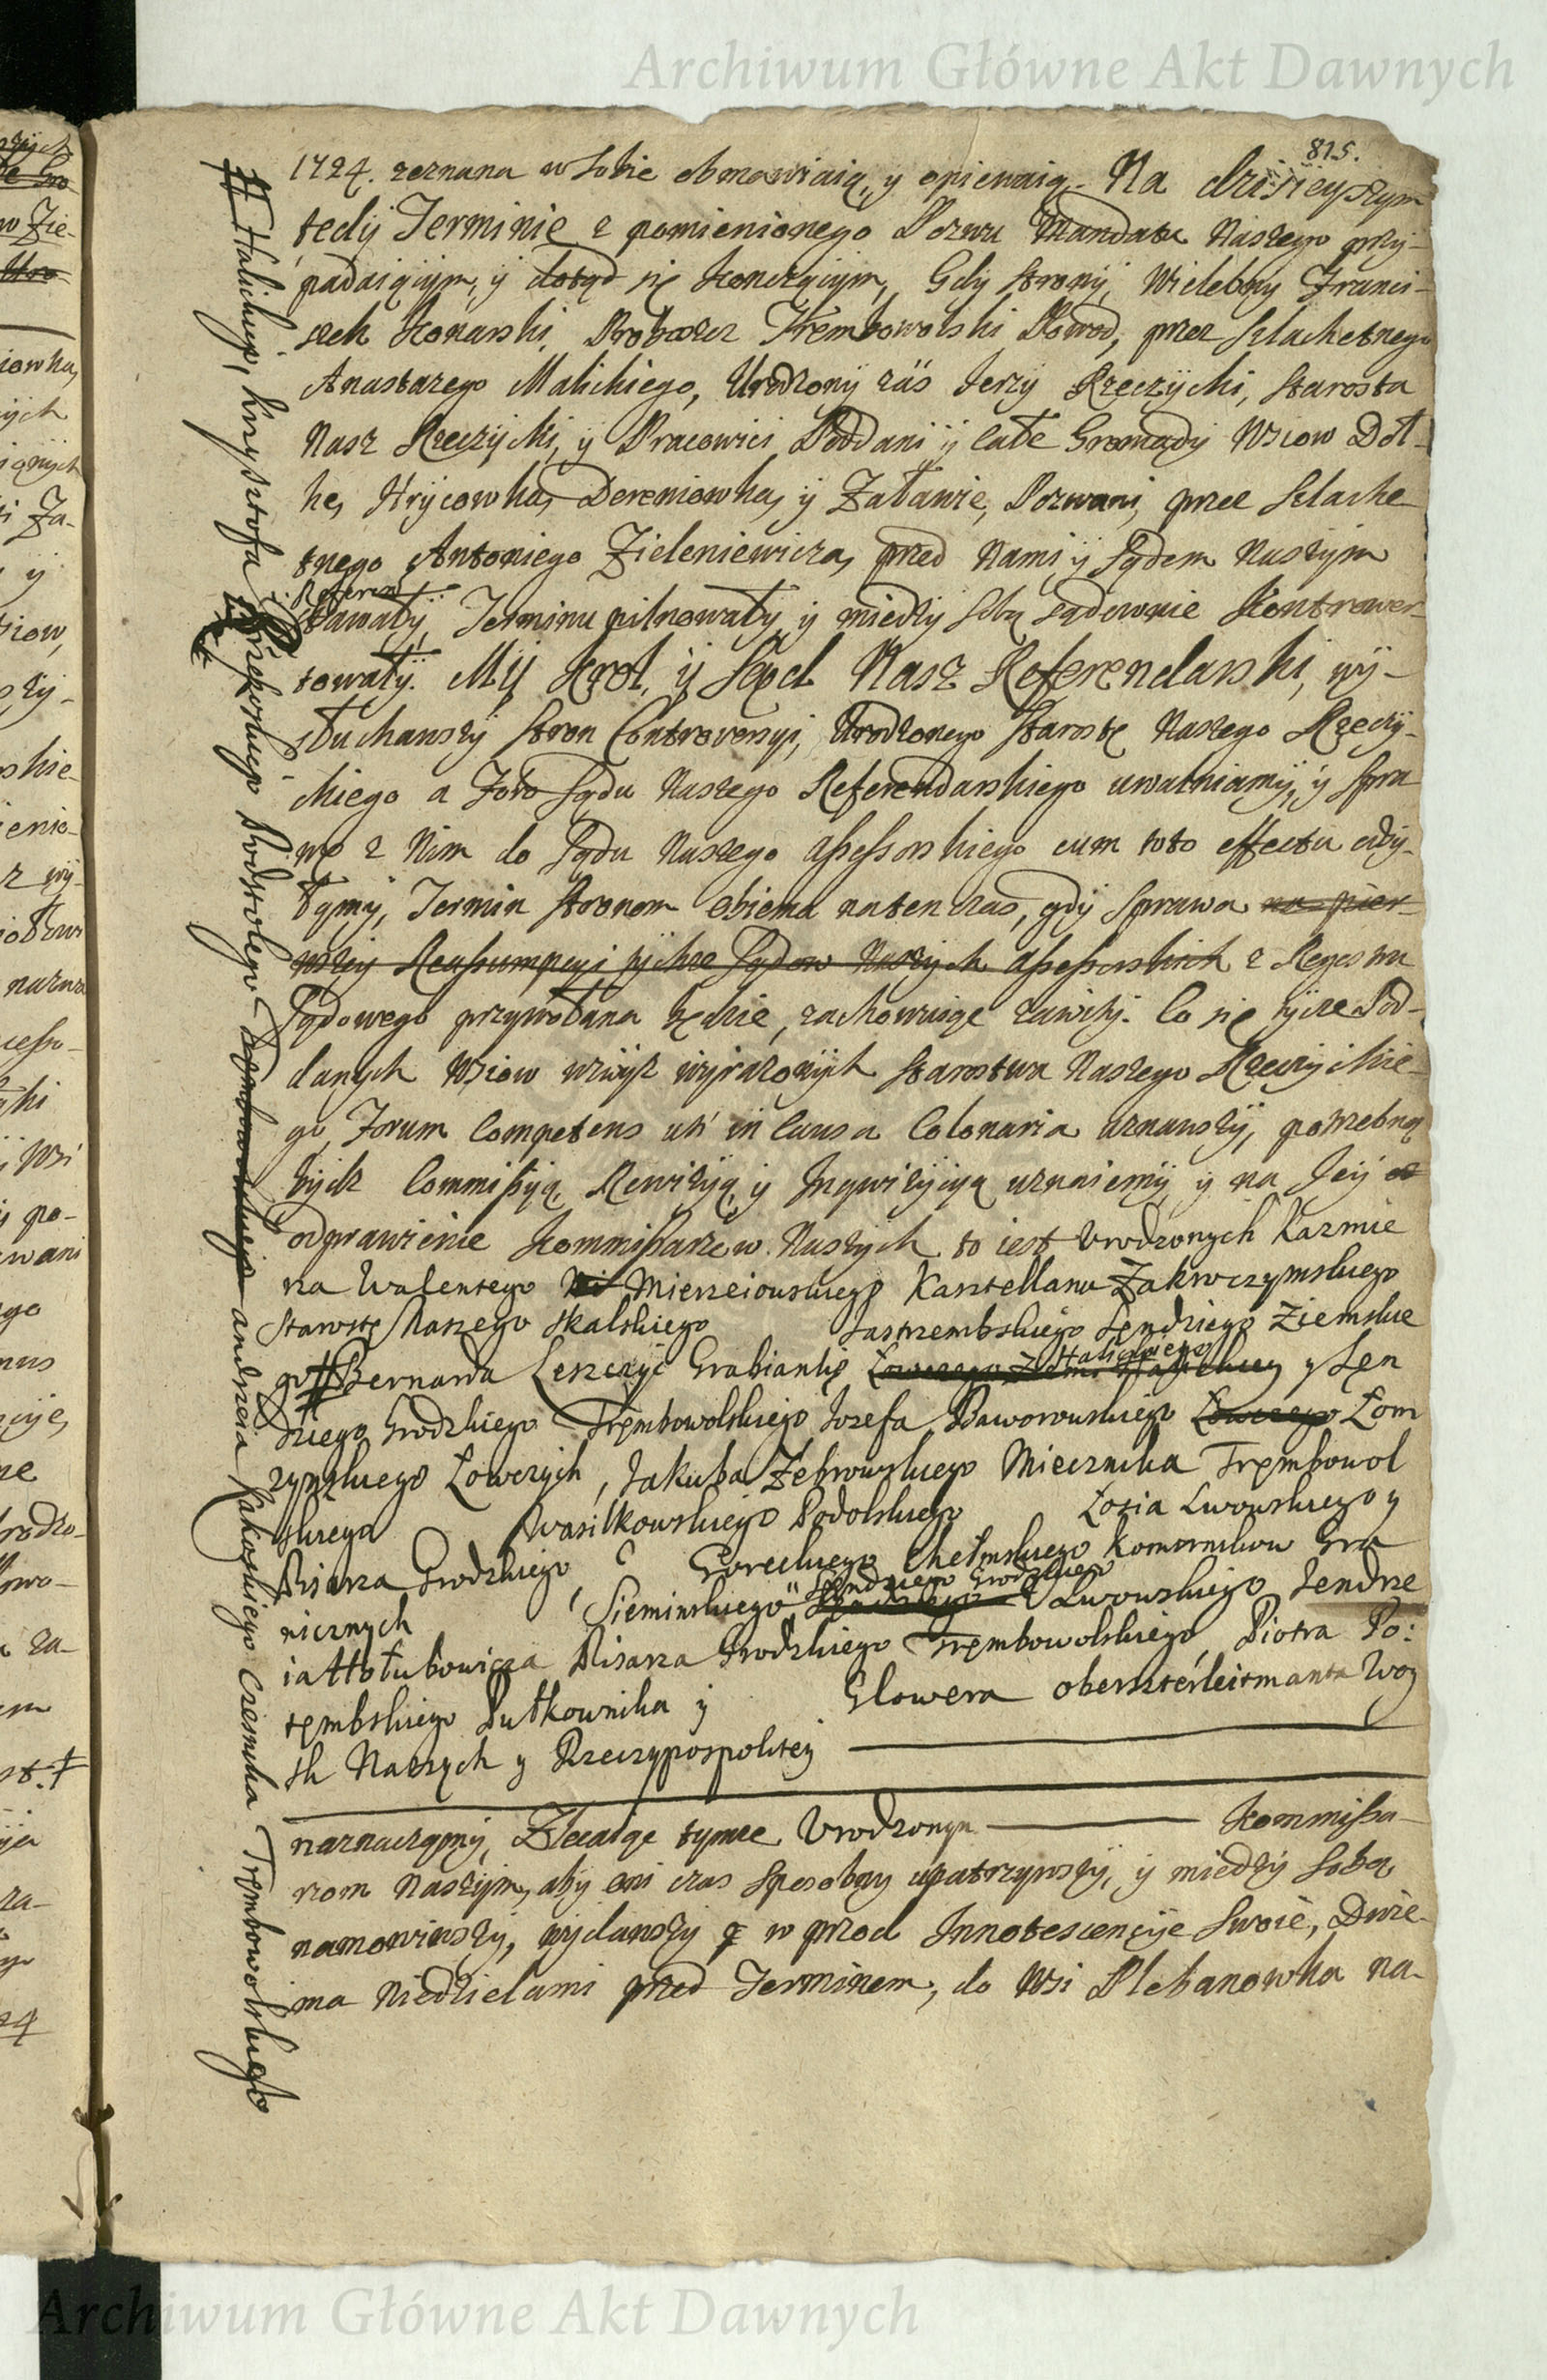 Archiwum Główne Akt Dawnych
815.
1724. zeznana w sobie obmawiaią, y opiewaią. Na dzisieyszym
tedÿ Terminie z pomienionego Pozwu Mandatu Naszego przÿ-
padaiąçÿm, ÿ dotąd się konczącÿm, Gdÿ Stronÿ, Wielebny Franci-
szek Konarski, Proboszcz Trembowolski Powod, przez Szlachetnego
Anastazego Malickiego, Urodzonÿ zás Jerzÿ Rzeczÿcki, Starosta
Nasz Rzeczÿcki, ÿ Pracowici Poddani ÿ całe Gromadÿ Wsiow Doł-
he, Hrÿcowka, Dereniowka, ÿ Załawie, Pozwani, przez Szlache
tnego Antoniego Zieleniewicza, przed Nami, ÿ Sądem Naszÿm
Referen:
Stawałÿ, Terminu pilnowałÿ, ÿ miedzÿ sobą sądownie Kontrower-
towałÿ. MÿJ Krol, ÿ Sąd Nasz Referendarski, wÿ-
słuchawszÿ Stron Controversyi, Urodzonego Starostę Naszego Rzeczÿ-
ckiego a Foro Sądu Naszego Referendarskiego uwalniamÿ, ÿ spra
wę z Nim do Sądu Naszego Assessorskiego cum toto effectu odsÿ-
łamÿ, Termin Stronom obiema natenczas, gdÿ Sprawa na pier-
wszej Reassumpcyi tÿchze Sądow Naszÿch Assessorskich z Regestru
Sądowego przywołana będzie, zachowuiąc zawitÿ. Co się tÿcze Pod-
danych Wsiow wzwÿż wÿrażonÿch Starostwa Naszego Rzeczÿckie-
go, Forum Competens uti in Causa Colonaria uznawszÿ, potrzebną
bÿdz Commissÿą, Rewizÿą, ÿ Inqwizÿcyą uznaiemÿ, ÿ na Jeÿ
odprawienie Kommissarzow Naszÿch to iest Urodzonych Kazmie
rza Walentego Mierzeiowskiego Kasztellana Zakroczymskiego
Starostę Naszego Skalskiego Jastrzembskiego Sendziego Ziemskie
go # Bernarda Leszczyc Grabiankę Łowczego Ziemi Halickiey Halickiego y Sen
dziego Grodzkiego Trembowolskiego Jozefa Baworowskiego Łowczego Łom
zynskiego Łowczych, Jakuba Zebrowskiego Miecznika Trembowol
skiego Wasilkowskiego Podolskiego Łosia Lwowskiego y
Pisarza Grodzkiego, Goreckiego Chełmskiego Komornikow Gra
nicznych, Siemińskiego Sendziego Grodzkiego Lwowskiego Jendrze
ia Hołubowicza Pisarza Grodzkiego Trembowolskiego Piotra Po:
tembskiego Pułkownika y Glowera oberszterleitmanta Woy
sk Naszych y Rzeczypospolitey
naznaczamÿ, Zlecaiąc tymze Urodzonym Kommissa-
rzom Naszÿm, abÿ oni czas sposobny upatrzywszÿ, ÿ miedzÿ sobą
namowiwszÿ, wÿdawszÿ w przod Innotescencÿe Swoie, Dwie-
ma Niedzielami przed Terminem, do Wsi Plebanowka na-
# Halickiego, Krzysztofa Przełuskiego Podstolego Dembowskiego Andrzeia Kakowskiego Czesnika Trembowolskiego
Archiwum Główne Akt Dawnych